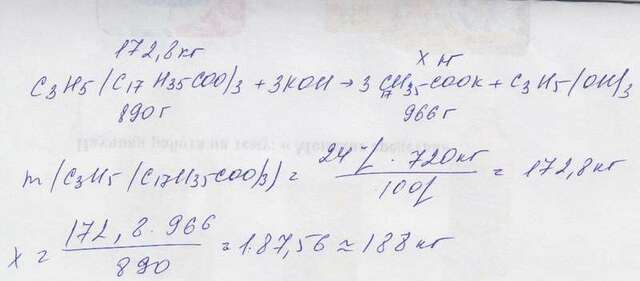 172,8кг х кг
C3H5/C17H35COO/3 + 3KOH → 3 C17H35COOK + C3H5/OH/3
890г 966г
m/C3H5/C17H35COO/3/ = 24% · 720кг / 100% = 172,8кг
x = 172,8 · 966 / 890 = 187,56 ≈ 188 кг